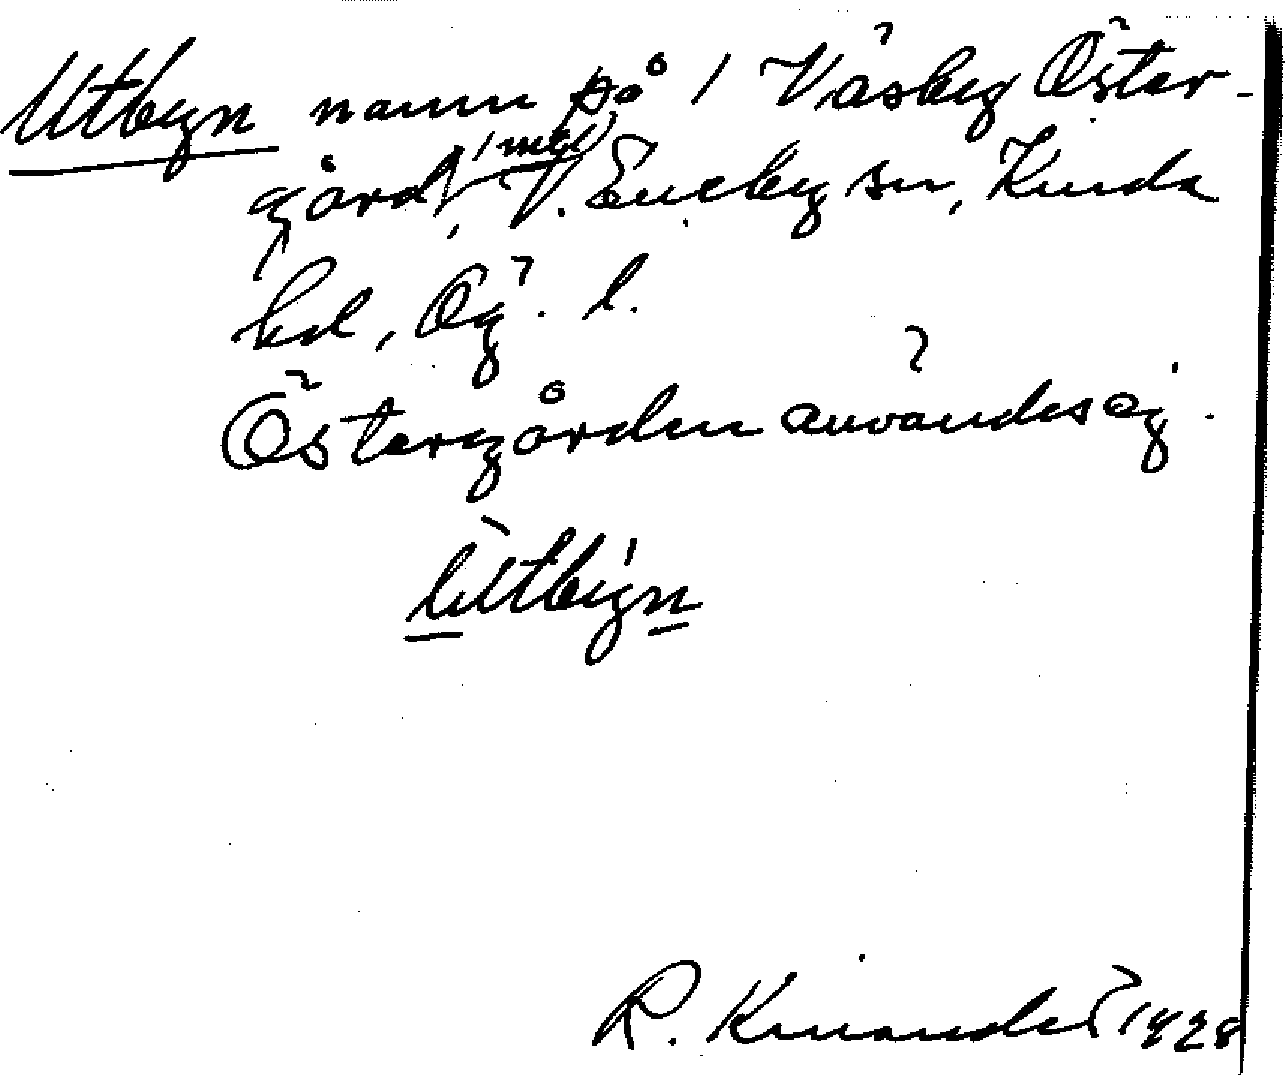 Utbyn namn på 1 Väsby Öster-
gård, 1 mtl, V. Eneby sn, Kinda
hd, Ög. l.
Östergården användes ej.
Utbyn
R. Kinander 1928